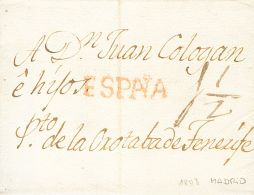 A Dn. Juan Cologan
ê hijos ESPAÑA 1 1/2
Pto. de la Orotaba de Tenerife
1803 MADRID